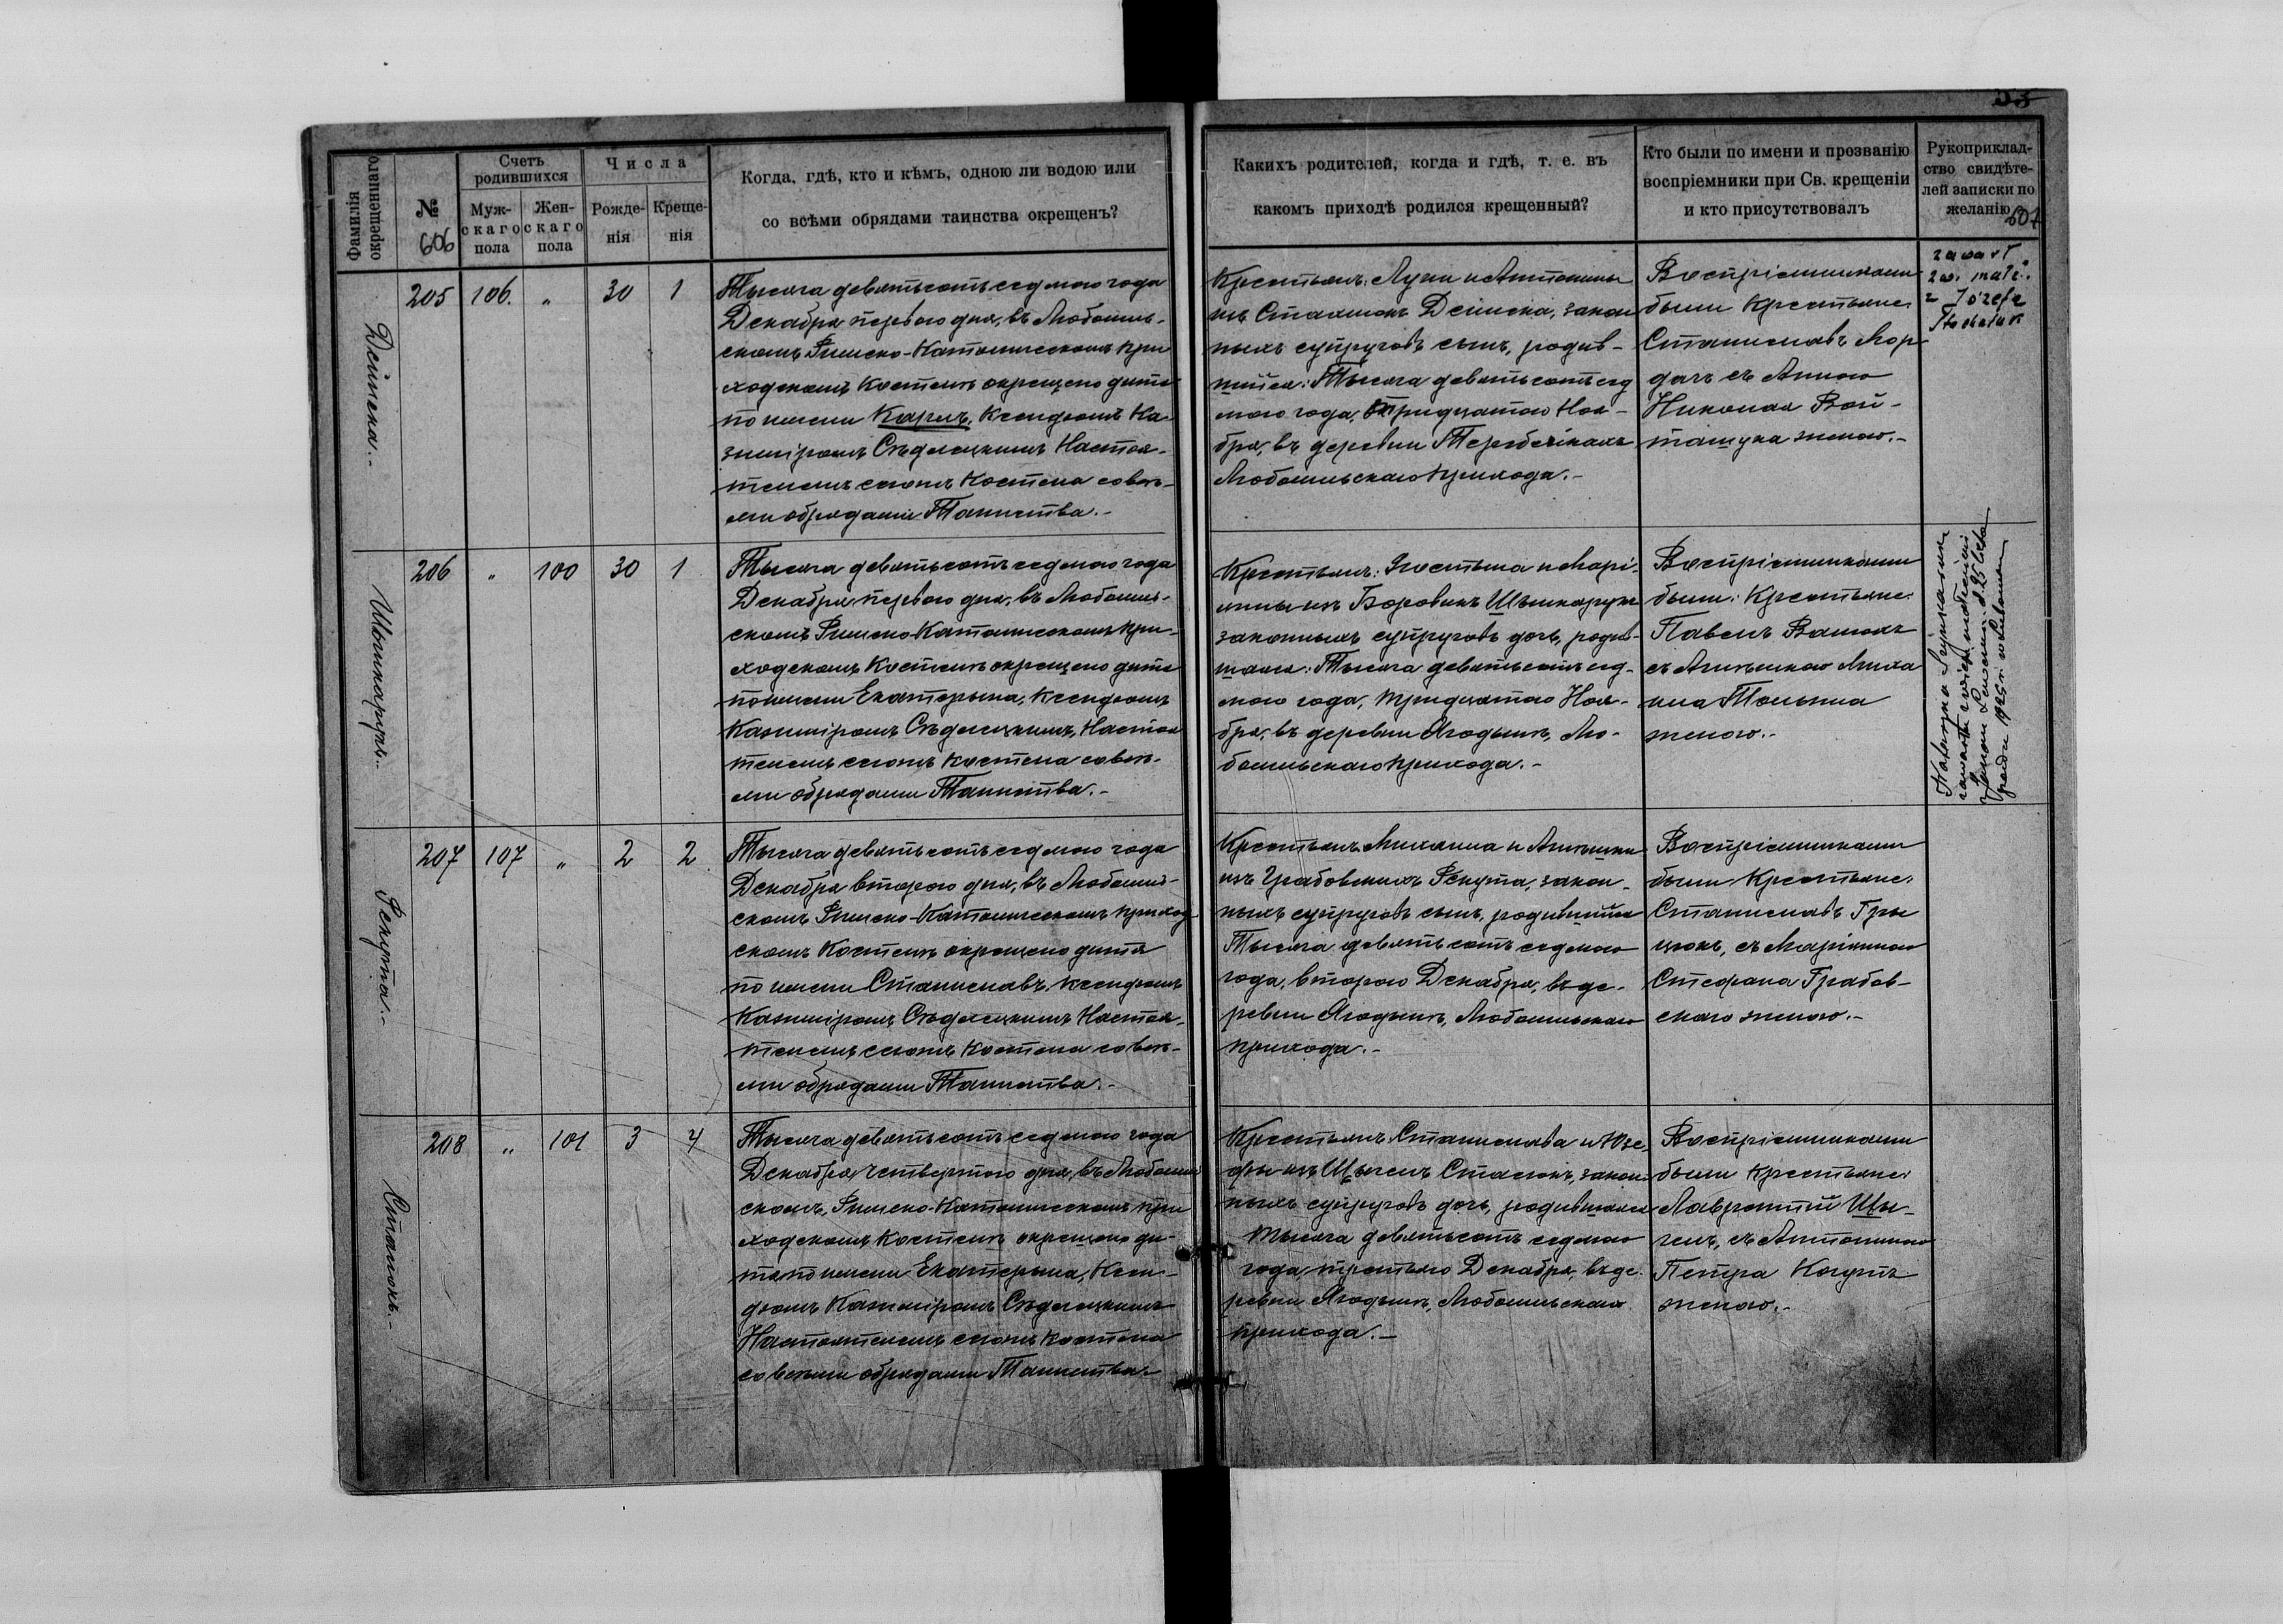 53
Фамилія окрещеннаго
№
606
Счетъ родившихся
Мужскаго пола
Женскаго пола
Числа
Рожденія
Крещенія
Когда, гдѣ, кто и кѣмъ, одною ли водою или
со всѣми обрядами таинства окрещенъ?
Какихъ родителей, когда и гдѣ, т. е. въ
какомъ приходѣ родился крещенный?
Кто были по имени и прозванію
воспріемники при Св. крещеніи
и кто присутствовалъ
Рукоприклад-
ство свидѣте-
лей записки по
желанію
607
Дейнека.-
205 106. „ 30 1
Тысяча девятьсотъ седмого года
Декабря перваго дня, въ Любомль-
скомъ Римско-Католическомъ при
ходскомъ Костелѣ окрещено дитя
по имени Карлъ, Ксендзомъ Ка-
зиміромъ Сѣдлецкимъ Настоя-
телемъ сего Костела со всѣ-
ми обрядами Таинства.-
Крестьянъ: Луки и Антонины
изъ Стасюкъ Дейнека, закон
ныхъ супруговъ сынъ, родив-
шійся: Тысяча девятьсотъ сед
мого года, Тридцатаго Ноя-
бря, въ деревни Теребейкахъ
Любомльскаго прихода.-
Воспріемниками
были Крестьяне:
Станиславъ Мор
дачъ съ Анною
Николая Вой-
ташука женою.-
zawarł
zw. małż.
z Józefą
206 „ 100 30 1
Тысяча девятьсотъ седмого года
Декабря перваго дня, въ Любомль-
скомъ Римско-Католическомъ при-
ходскомъ Костелѣ окрещено дитя
по имени Екатерина, Ксендзомъ
Казиміромъ Сѣдлецкимъ, Настоя
телемъ сего Костела со всѣ-
ми обрядами Таинства.-
Крестьянъ: Игнатія и Марі-
анны изъ Боровикъ
законныхъ супруговъ дочь, родив-
шаяся: Тысяча девятьсотъ сед-
мого года, Тридцатаго Ноя-
бря, въ деревни Ягодынѣ, Лю-
бомльскаго прихода.-
Воспріемниками
были: Крестьяне:
Павелъ
съ Агнешкою Миха
ила
женою.-
Рекута.-
207 107 „ 2 2
Тысяча девятьсотъ седмого года
Декабря втораго дня, въ Любомль-
скомъ Римско-Католическомъ приход
скомъ Костелѣ окрещено дитя
по имени Станиславъ, Ксендзомъ
Казиміромъ Сѣдлецкимъ Настоя-
телемъ сего Костела со всѣ-
ми обрядами Таинства.-
Крестьянъ Михаила и Агнешки
изъ Грабовскихъ Рекута, закон-
ныхъ супруговъ сынъ, родившійся
Тысяча девятьсотъ седмого
года, втораго Декабря, въ де-
ревни Ягодынѣ, Любомльскаго
прихода.-
Воспріемниками
были Крестьяне:
Станиславъ Гры
цюкъ, съ Маріанною
Стефана Грабов-
скаго женою.-
Стасюкъ.-
208 „ 101 3 4
Тысяча девятьсотъ седмого года
Декабря четвертаго дня, въ Любомль
скомъ, Римско-Католическомъ при
ходскомъ Костелѣ окрещено ди-
тя по имени Екатерина, Ксен-
дзомъ Казиміромъ Сѣдлецкимъ
Настоятелемъ сего Костела
со всѣми обрядами Таинства.-
Крестьянъ Станислава и Юзе-
фы изъ Щигелъ Стасюкъ, закон-
ныхъ супруговъ дочь, родившаяся
Тысяча девятьсотъ седмого
года, третьяго Декабря, въ де-
ревни Ягодынѣ, Любомльскаго
прихода.-
Воспріемниками
были крестьяне:
Лаврентій Щи-
гелъ, съ Антониною
Петра Когутъ
женою.-